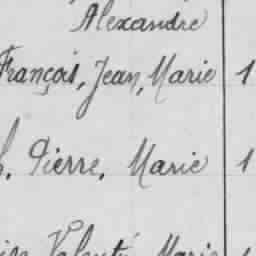 Alexandre
François, Jean, Marie 1
Pierre, Marie 1
Marie